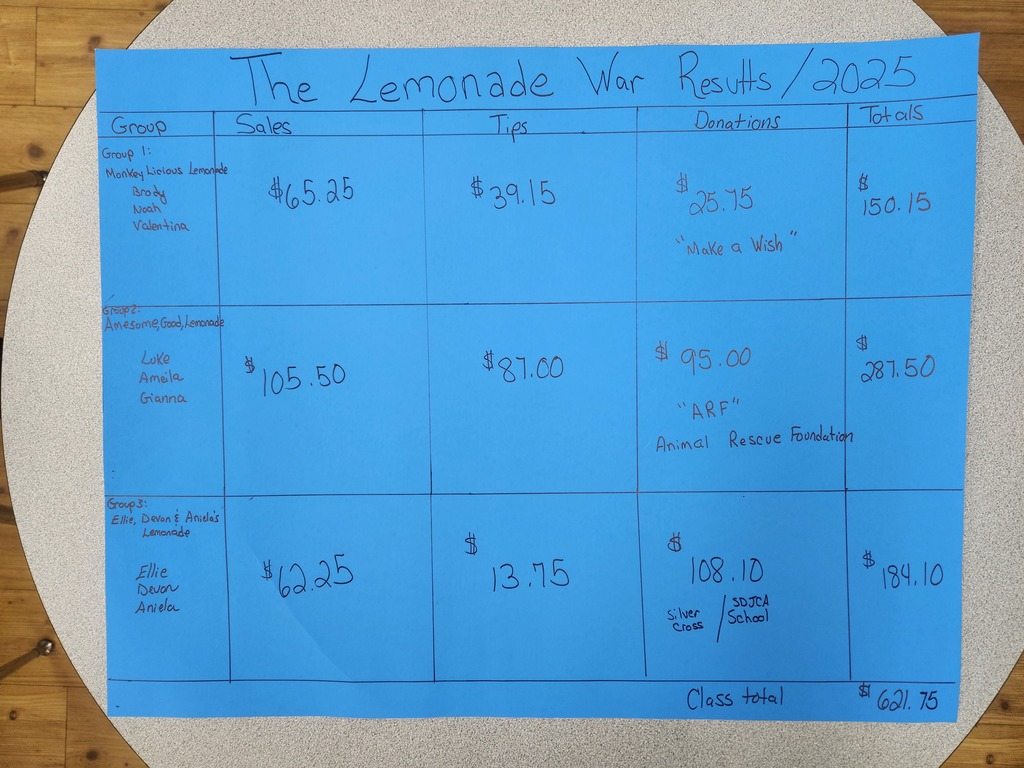 The Lemonade War Results/2025
Group Sales Tips Donations Totals
Group 1:
Monkey Licious Lemonade
Brody
Noah
Valentina
$65.25
$39.15
$25.75
"Make a Wish"
$150.15
Group 2:
Amesome, Good, Lemonade
Luke
Ameila
Gianna
$105.50
$87.00
$95.00
"ARF"
Animal Rescue Foundation
$287.50
Group 3:
Ellie, Devon & Aniela's
Lemonade
Ellie
Devon
Aniela
$62.25
$13.75
$108.10
Silver Cross / SDJCA School
$184.10
Class total $621.75